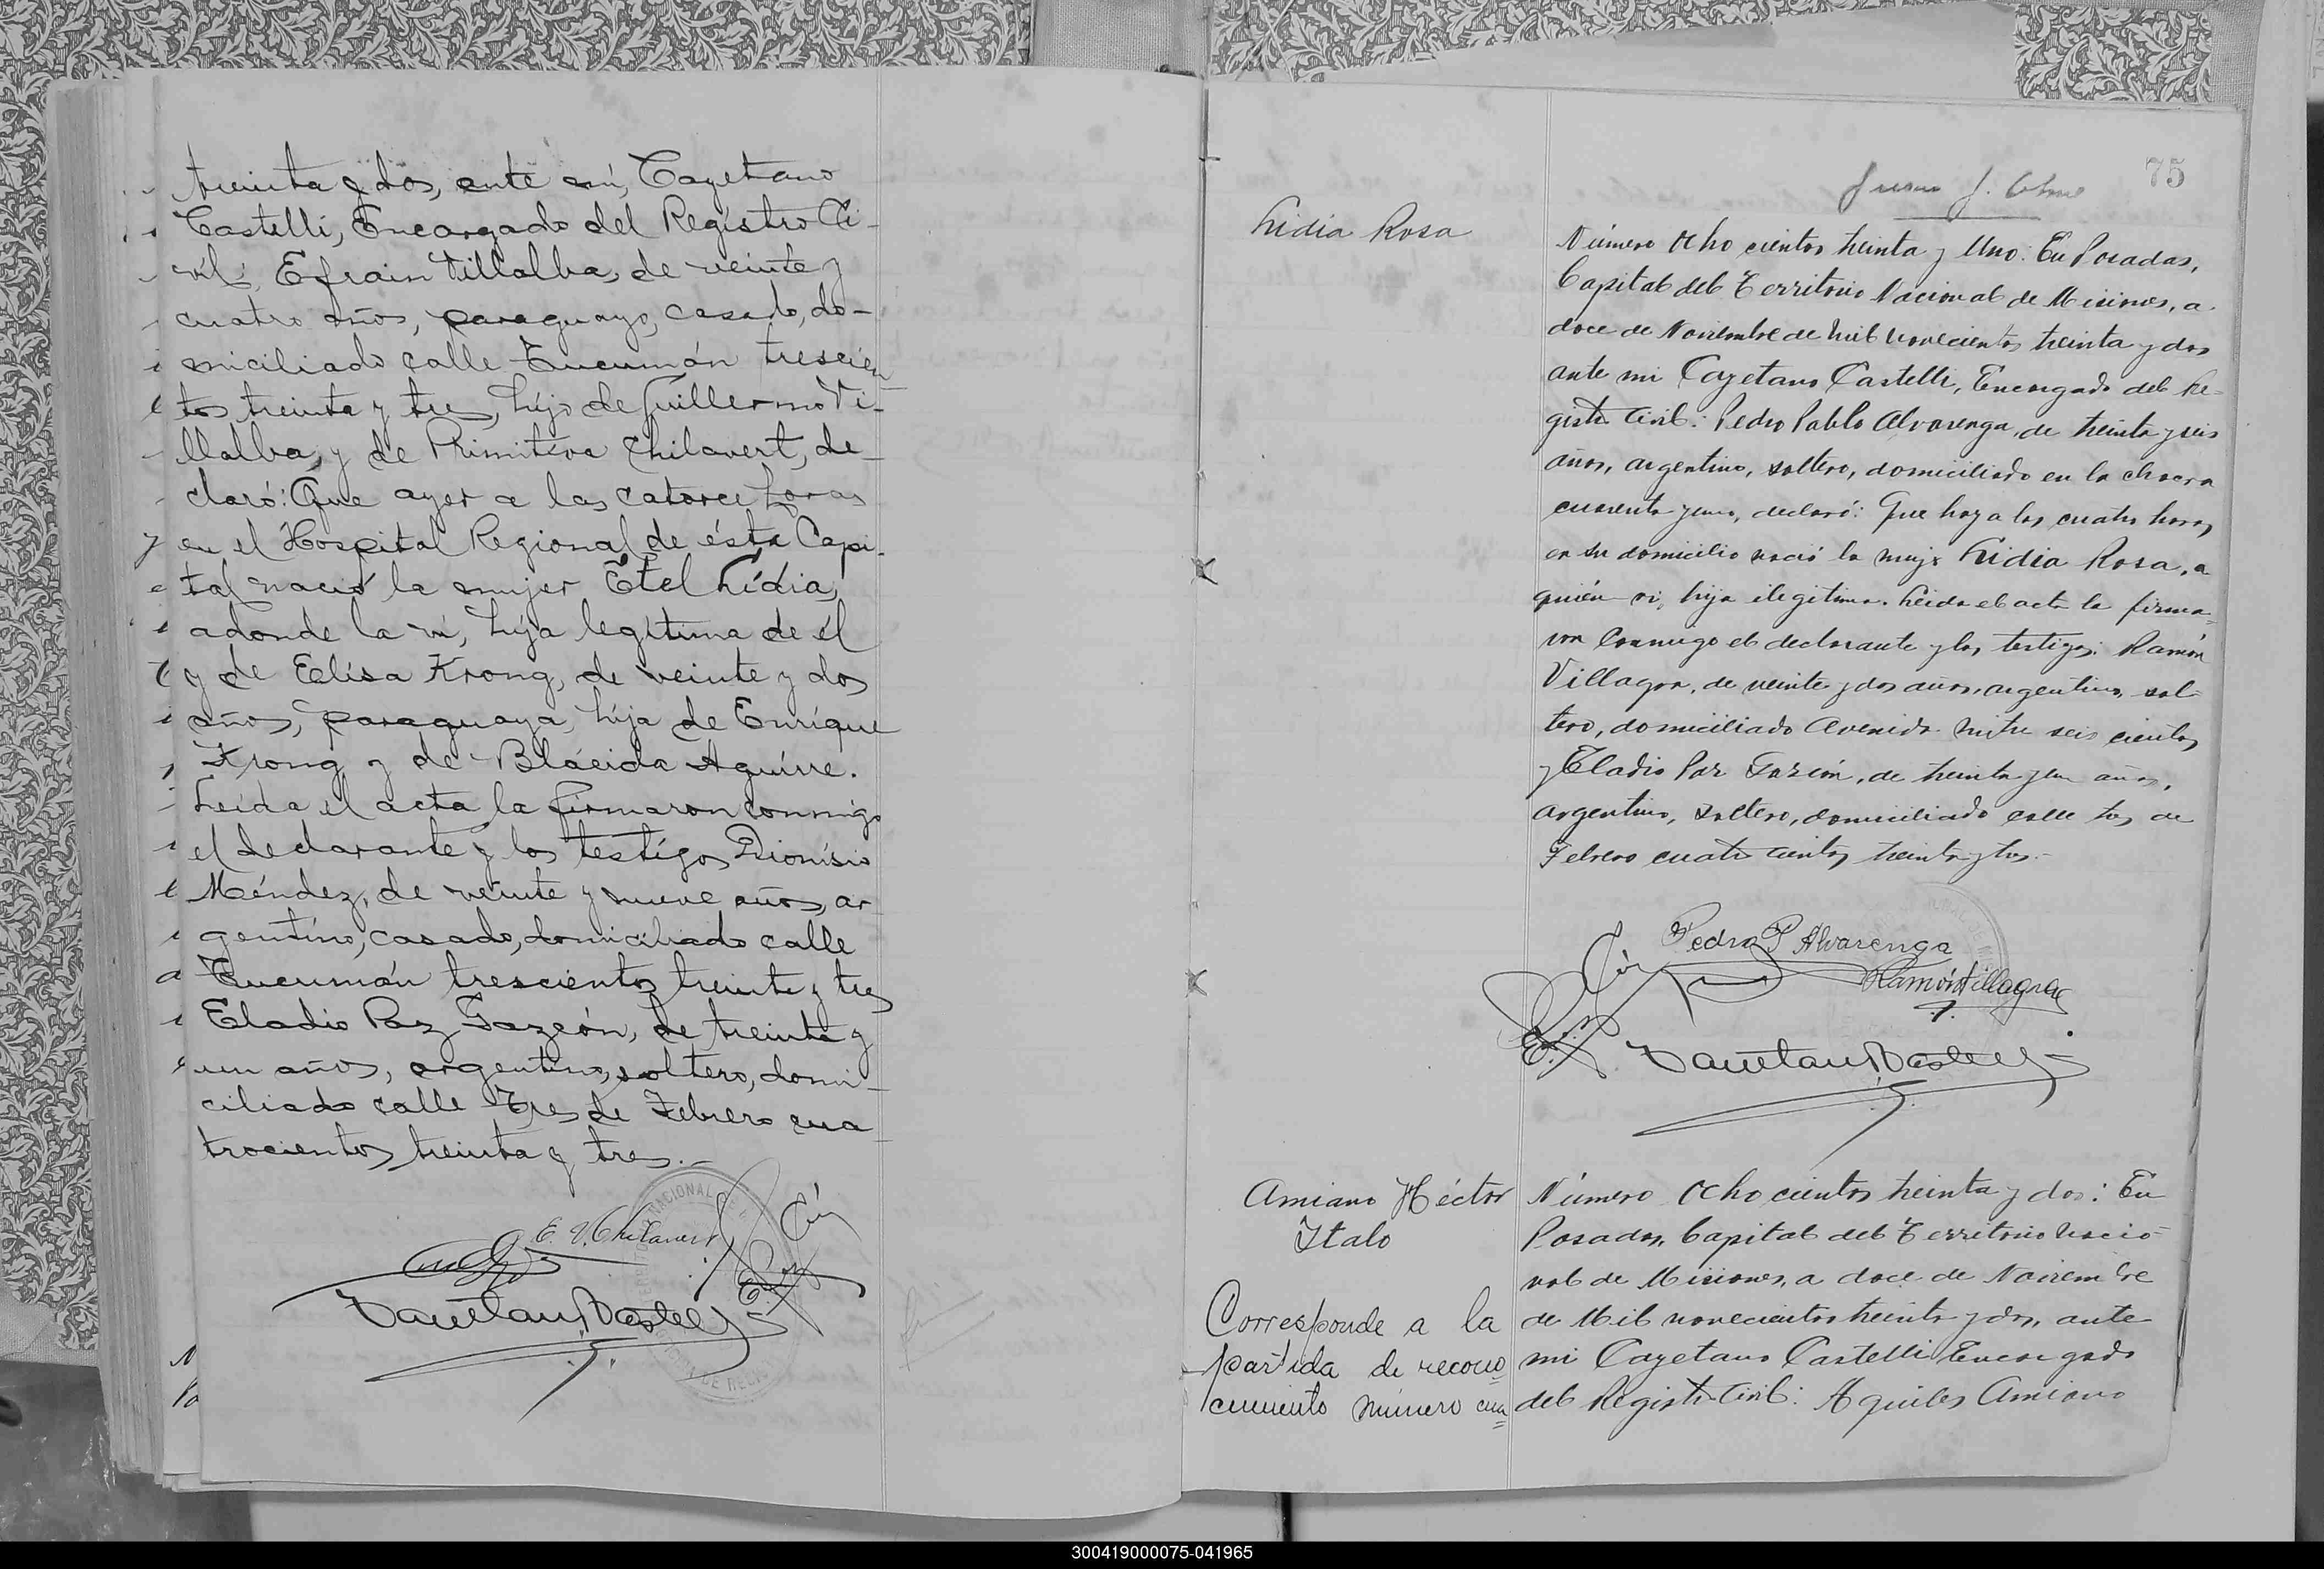 treinta y dos, ante mí, Cayetano
Castelli, Encargado del Registro Ci-
vil, Efrain Villalba, de veinte y
cuatro años, paraguayo, casado, do-
miciliado calle Tucumán trescien
tos treinta y tres, hijo de Guillermo Vi-
llalba, y de Primitiva Chilavert, de-
claró: Que ayer a las catorce horas
en el Hospital Regional de ésta Capi-
tal nació la mujer Etel Lídia,
adonde la ví, hija legítima de él
y de Elísa Krong, de veinte y dos
años, paraguaya, hija de Enríque
Krong y de Blácida Aguírre.
Leída el acta la firmaron conmigo
el declarante y los testígos Dionísio
Méndez, de veinte y nueve años, ar
gentíno, casado, domiciliado calle
Tucumán trescientos treinta y tres
Eladio Paz Garzón, de treinta y
un años, argentino, soltero, domi-
ciliado calle Tres de Febrero cua
trocientos treinta y tres.-
E. V. Chilavert
75
Lidia Rosa
Número Ocho cientos treinta y Uno: En Posadas,
Capital del Territorio Nacional de Misiones, a
doce de Noviembre de mil novecientos treinta y dos
ante mi Cayetano Castelli, Encargado del Re-
gistro Civil: Pedro Pablo Alvarenga, de treinta y seis
años, argentino, soltero, domiciliado en la chacra
cuarenta y uno, declaró: Que hoy a las cuatro horas
en su domicilio nació la mujer Lidia Rosa, a
quién vi, hija ilegitima. Leida el acta la firma-
ron conmigo el declarante y los testigos: Ramón
Villagra, de veinte y dos años, argentino, sol-
tero, domiciliado Avenida Mitre seis cientos
y Eladio Paz Garzón, de treinta y un años,
argentino, soltero, domiciliado calle tres de
Febrero cuatro cientos treinta y tres.-
Pedro P Alvarenga
Ramón Villagra
Amiano Héctor
Italo
Corresponde a la
partida de recono
cimiento número cua
Número Ocho cientos treinta y dos: En
Posadas, Capital del Territorio Nacio-
nal de Misiones, a doce de Noviembre
de Mil novecientos treinta y dos, ante
mi Cayetano Castelli Encargado
del Registro Civil: Aquiles Amiano
300419000075-041965